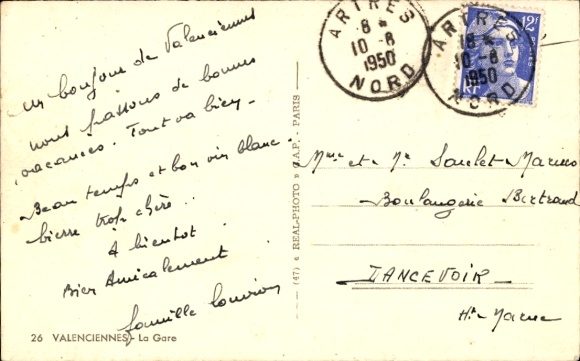 un bonjour de Valenciennes
nous passons de bonnes
vacances. Tout va bien -
Beau temps et bon vin blanc.
bierre trop chère..
A bientot.
Bien Amicalement
famille
26 VALENCIENNES - La Gare
(47) « REAL-PHOTO » .A.P. - PARIS
ARTRES
8 *
10 - 8
1950
NORD
ARTRES
18 *
10 - 8
1950
NORD
12F
Mme et Mr Marius
Boulangerie Bertrand
LANCEVOIR
Hte Marne